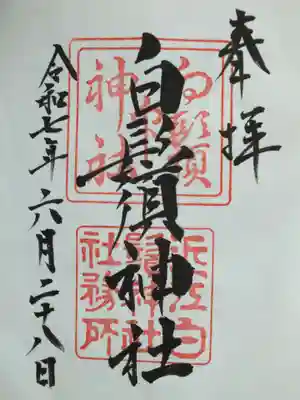 奉拝
白鬚神社
令和七年六月二十八日
白鬚
神社
近江白
鬚神社
社務所